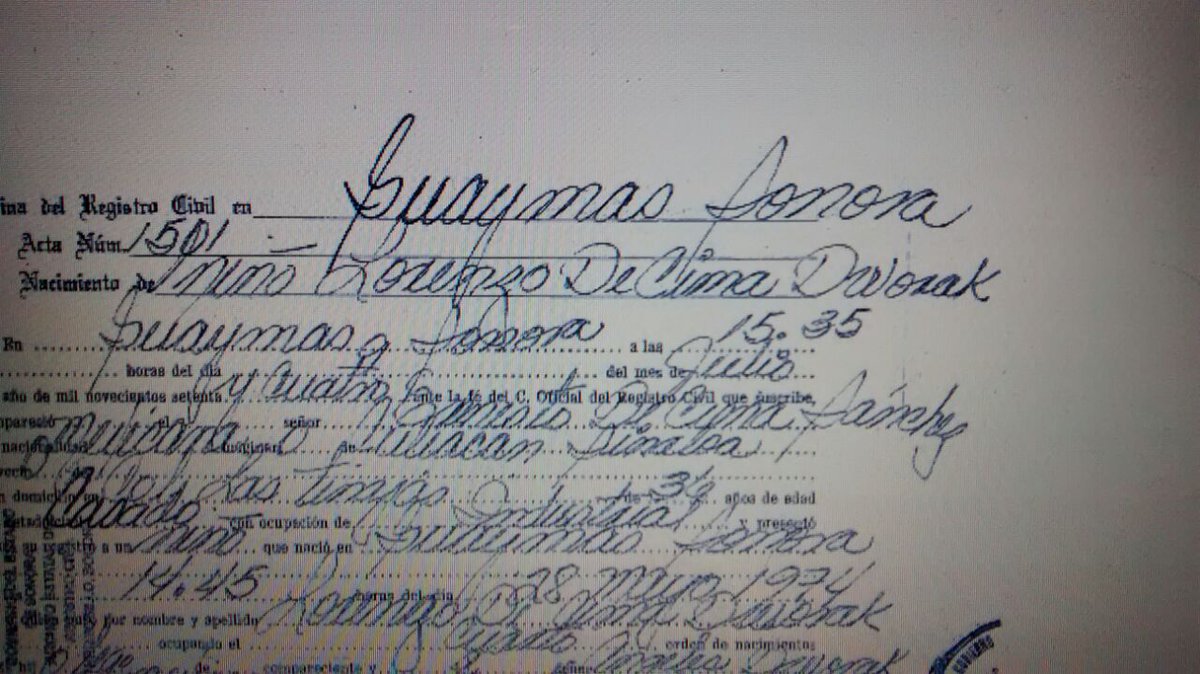 ina del Registro Civil en Guaymas Sonora
Acta Núm. 1501
Nacimiento de niño Lorenzo De Cima Dworak
En Guaymas Sonora a las 15:35
horas del día del mes de Julio
año de mil novecientos setenta y cuatro ante la fé del C. Oficial del Registro Civil que suscribe,
mpareció el señor De Cima Sánchez
nacionalidad de Culiacan Sinaloa
de años de edad
Casado con ocupación de Industrial y presentó
registro a un niño que nació en Guaymas Sonora
14:45 horas del día 28 Mayo 1974
por nombre y apellido Lorenzo De Cima Dworak
ocupando el Cuarto orden de nacimientos
de compareciente y Dworak